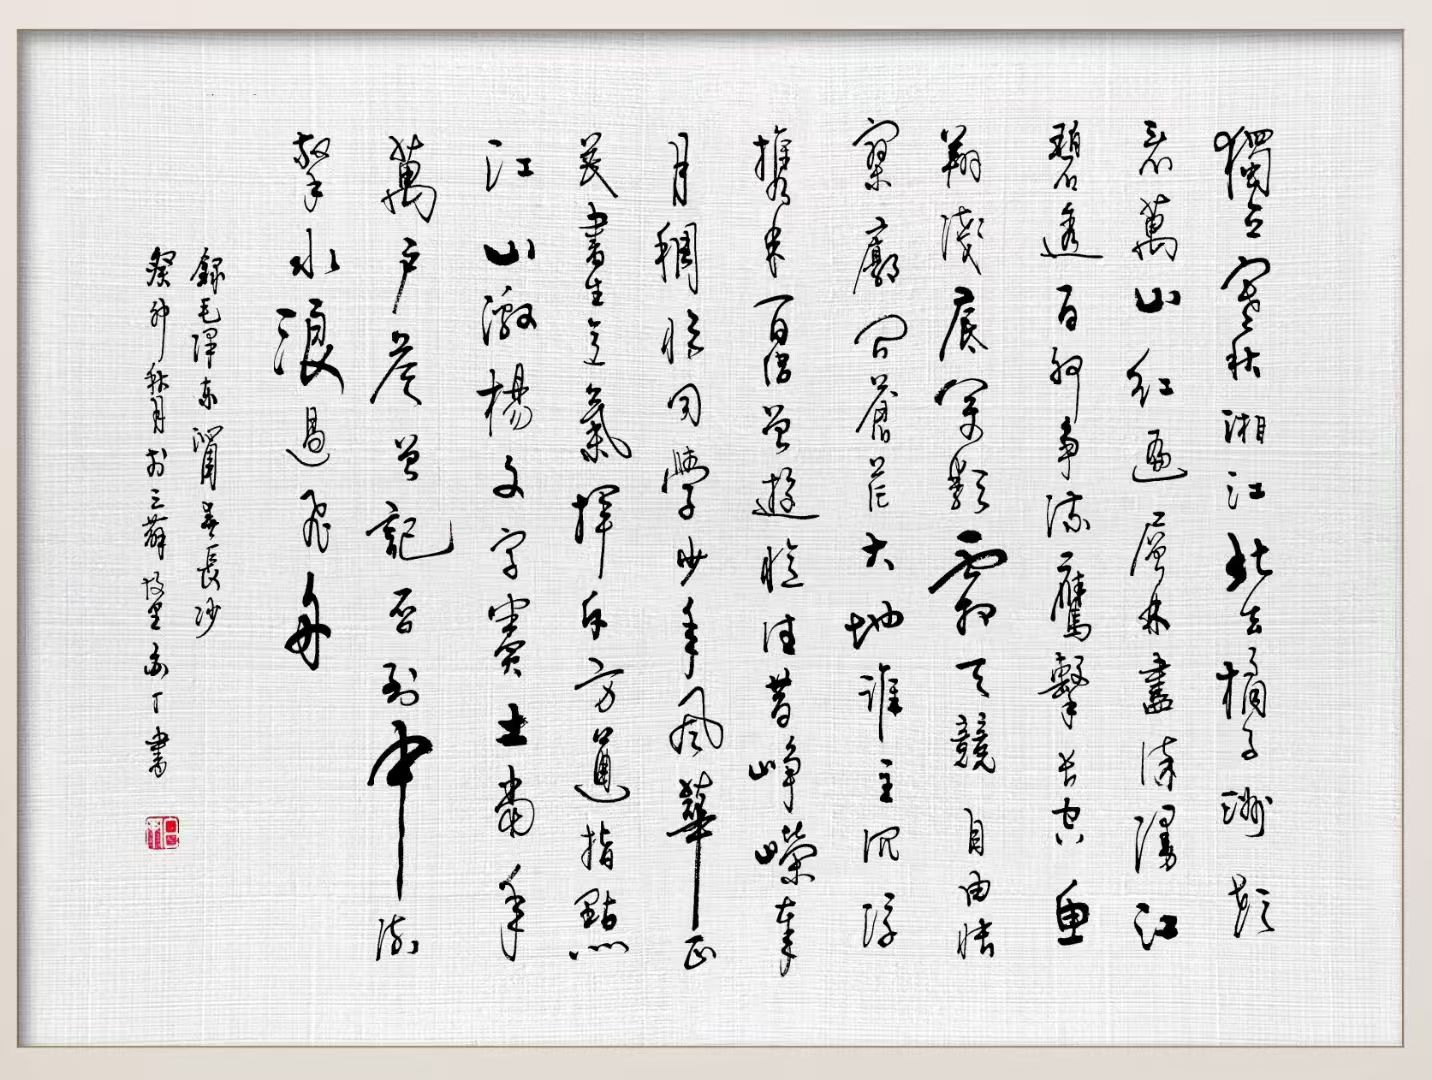 獨立寒秋湘江北去橘子洲頭
看萬山紅遍層林盡染漫江
碧透百舸爭流鷹擊長空魚
翔淺底萬類霜天競自由悵
寥廓問蒼茫大地誰主沉浮
携來百侶曾遊憶往昔崢嶸歲
月稠恰同學少年風華正
茂書生意氣揮斥方遒指點
江山激楊文字糞土當年
萬户侯曾記否到中流
擊水浪遏飛舟
錄毛澤東沁園春長沙
癸卯秋月於三蘇故里丁書